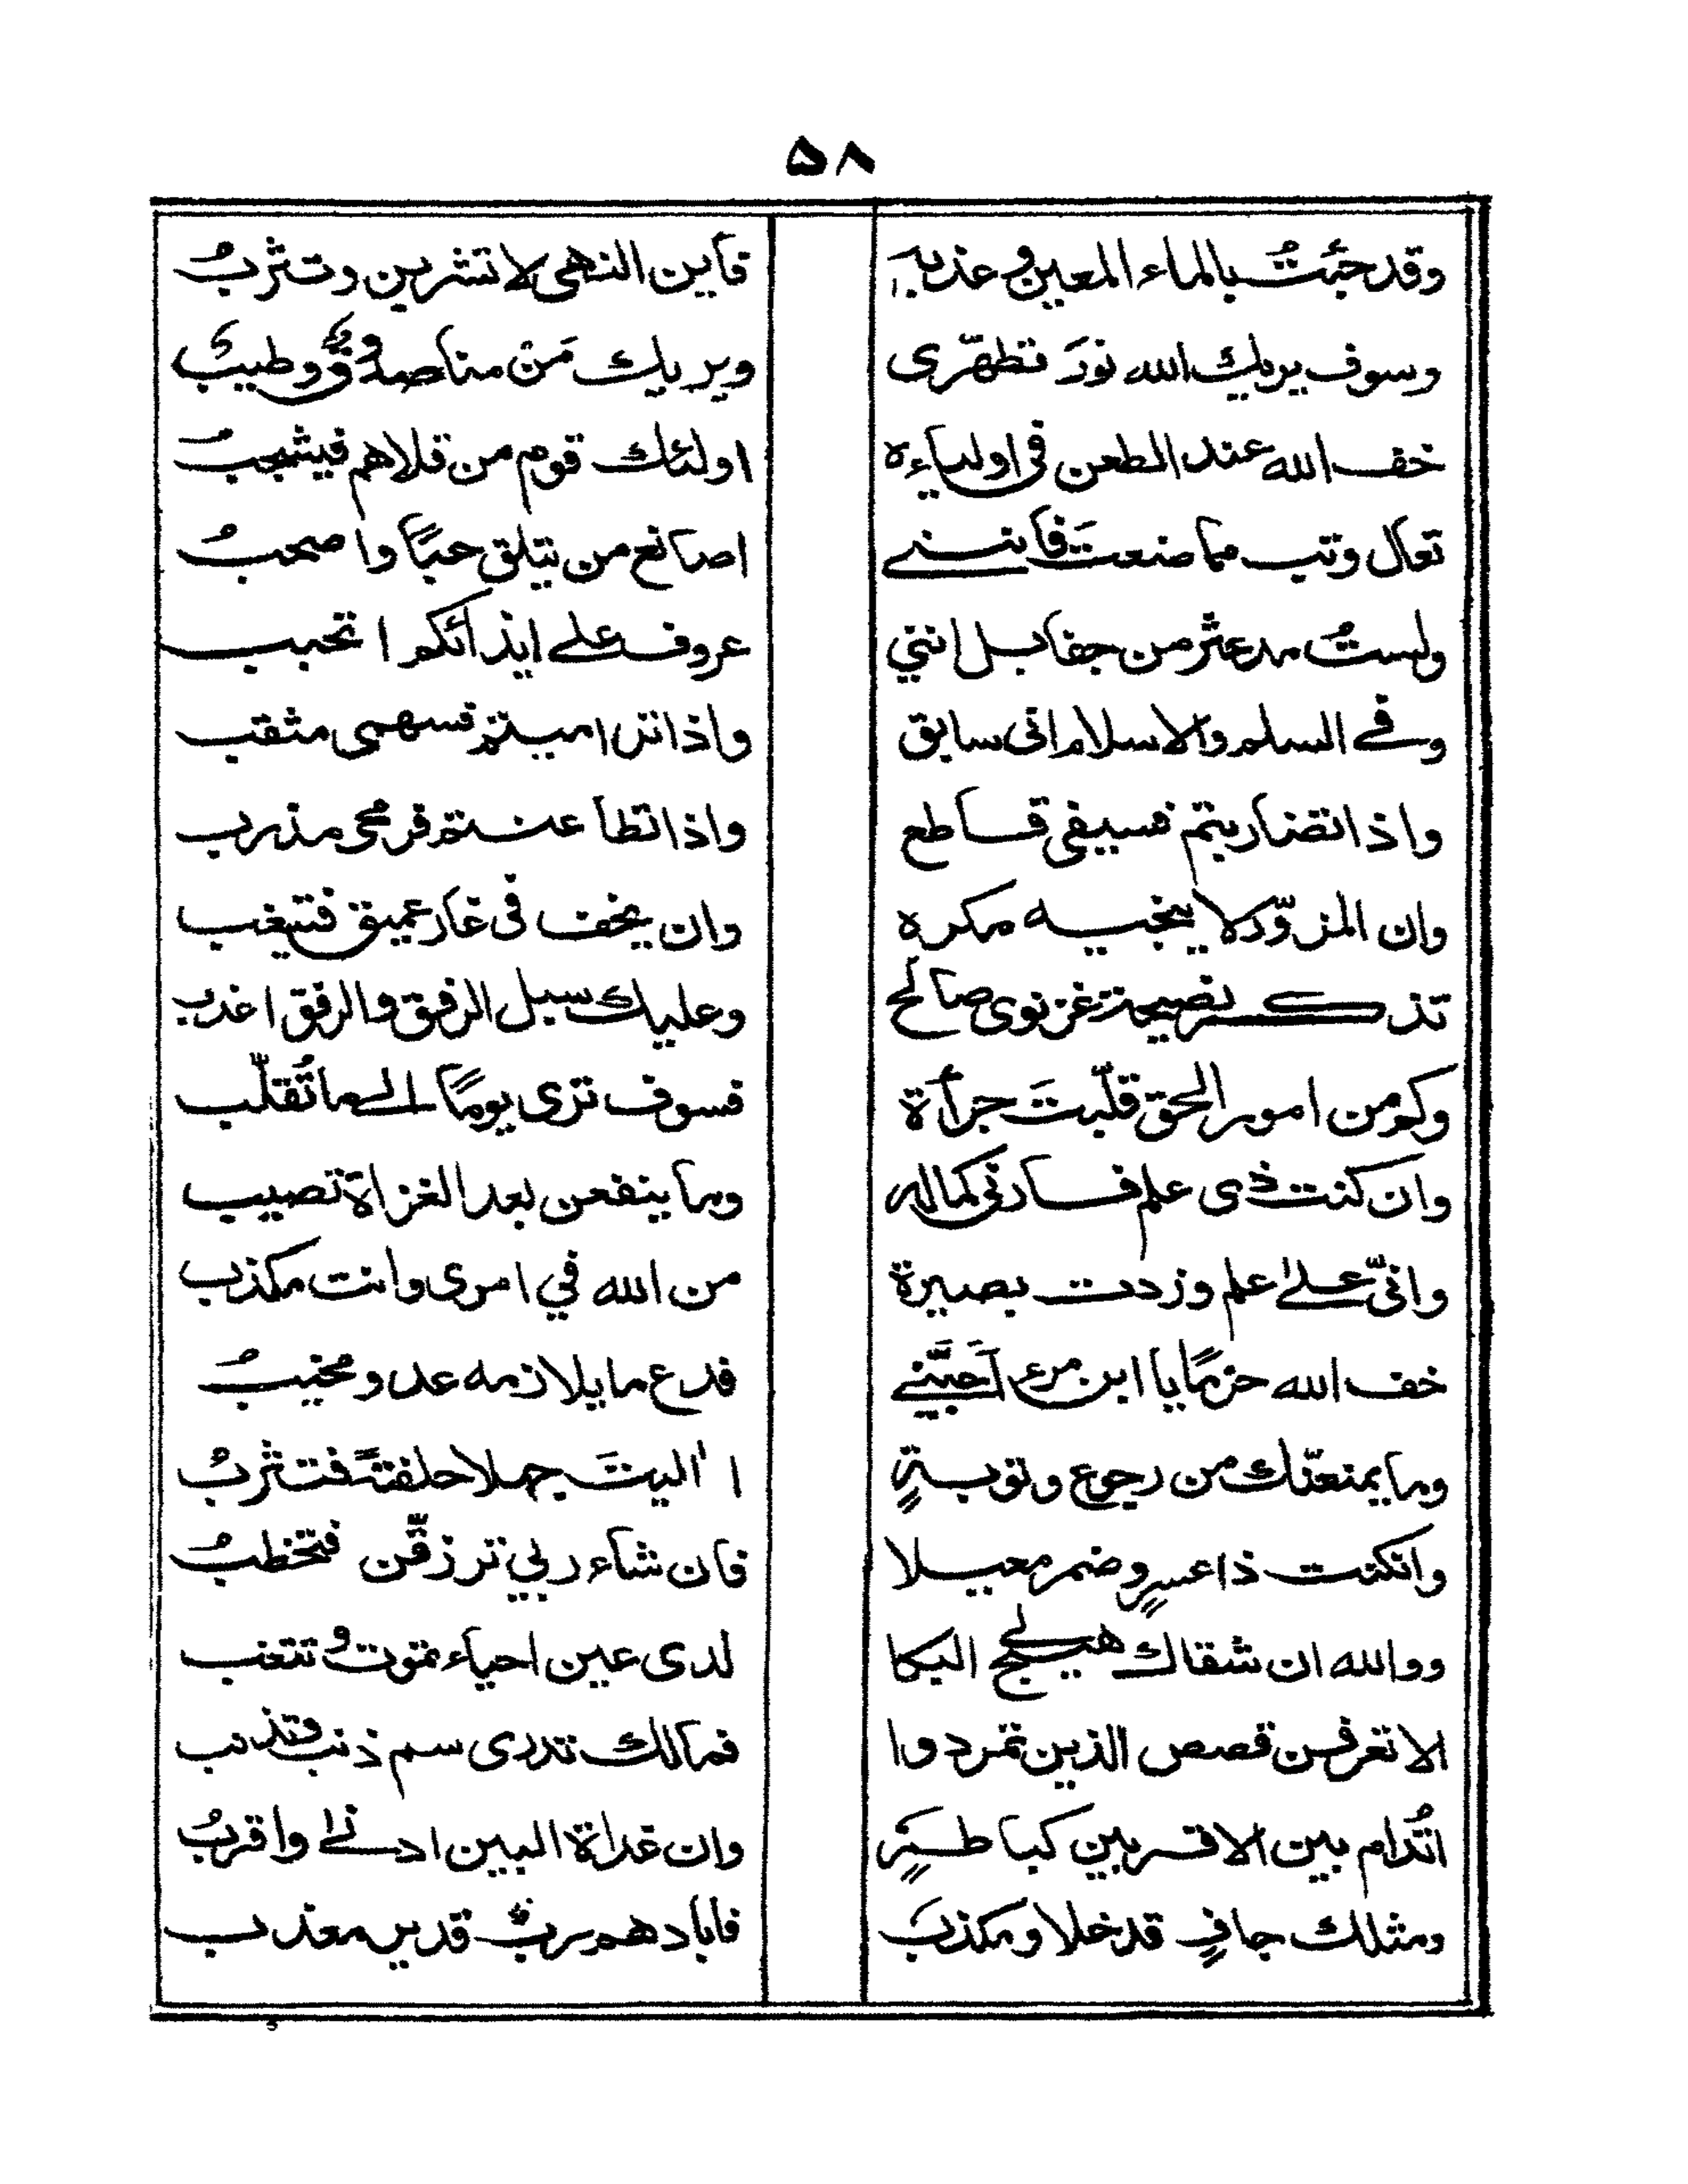 ۵۸
وقد جئتُ بالماء المعين وعذبه فأين النهى لا تشربن وتثربُ
وسوف يريك الله نورَ تطهّرى ويريك مَنْ منا صدوقٌ وطيبٌ
خف الله عند الطعن فى اولياءه اولئك قوم من قلاهم فيشجبُ
تعال وتب مما صنعتَ فاننے اصانع من يتلق حبًا واصحبُ
ولستُ مدعثر من جفا بل انني عروف علے ايذائكم اتحبب
وفے السلم والاسلام انى سابق واذا تراميتم فسهمى مثقب
واذا تضاربتم فسيفى قاطع واذا تطاعنتم فرمحى مذرب
وان المزوّر لا ينجيه مكره وان يخف فى غار عميق فتيغب
تذكر نصيحة غزنوى صالح وعليك سبل الرفق والرفق اعذب
وكم من امور الحق قلّبتَ جرأة فسوف ترى يومًا الى ما تُقلّب
وان كنت ذى علم فارنى كماله وما ينفعن بعد الغزاة تصيب
وانىّ علےٰ علم وزدت بصيرة من الله في امرى وانت مكذب
خف الله حزمًا يا ابن مرء اَحَبَّنے فدع ما يلازمه عدو مخيبُ
وما يمنعنّك من رجوع وتوبةٍ ا اٰليتَ جهلا حلفةً فتثربُ
وانكنت ذا عسرٍ وضمر معيلا فان شاء ربي ترزقّن فتخظبُ
ووالله ان شقاك هيج لے البكا لدى عين احياء تموت وتتغب
الا تعرفن قصص الذين تمردوا فمالك تدرى سم ذنب وتذنب
اتُدام بين الاقربين كباطرٍ وان غداة البين ادنےٰ واقربُ
ومثلك جافٍ قد خلا ومكذبَ فابادهم ربٌ قدير معذب